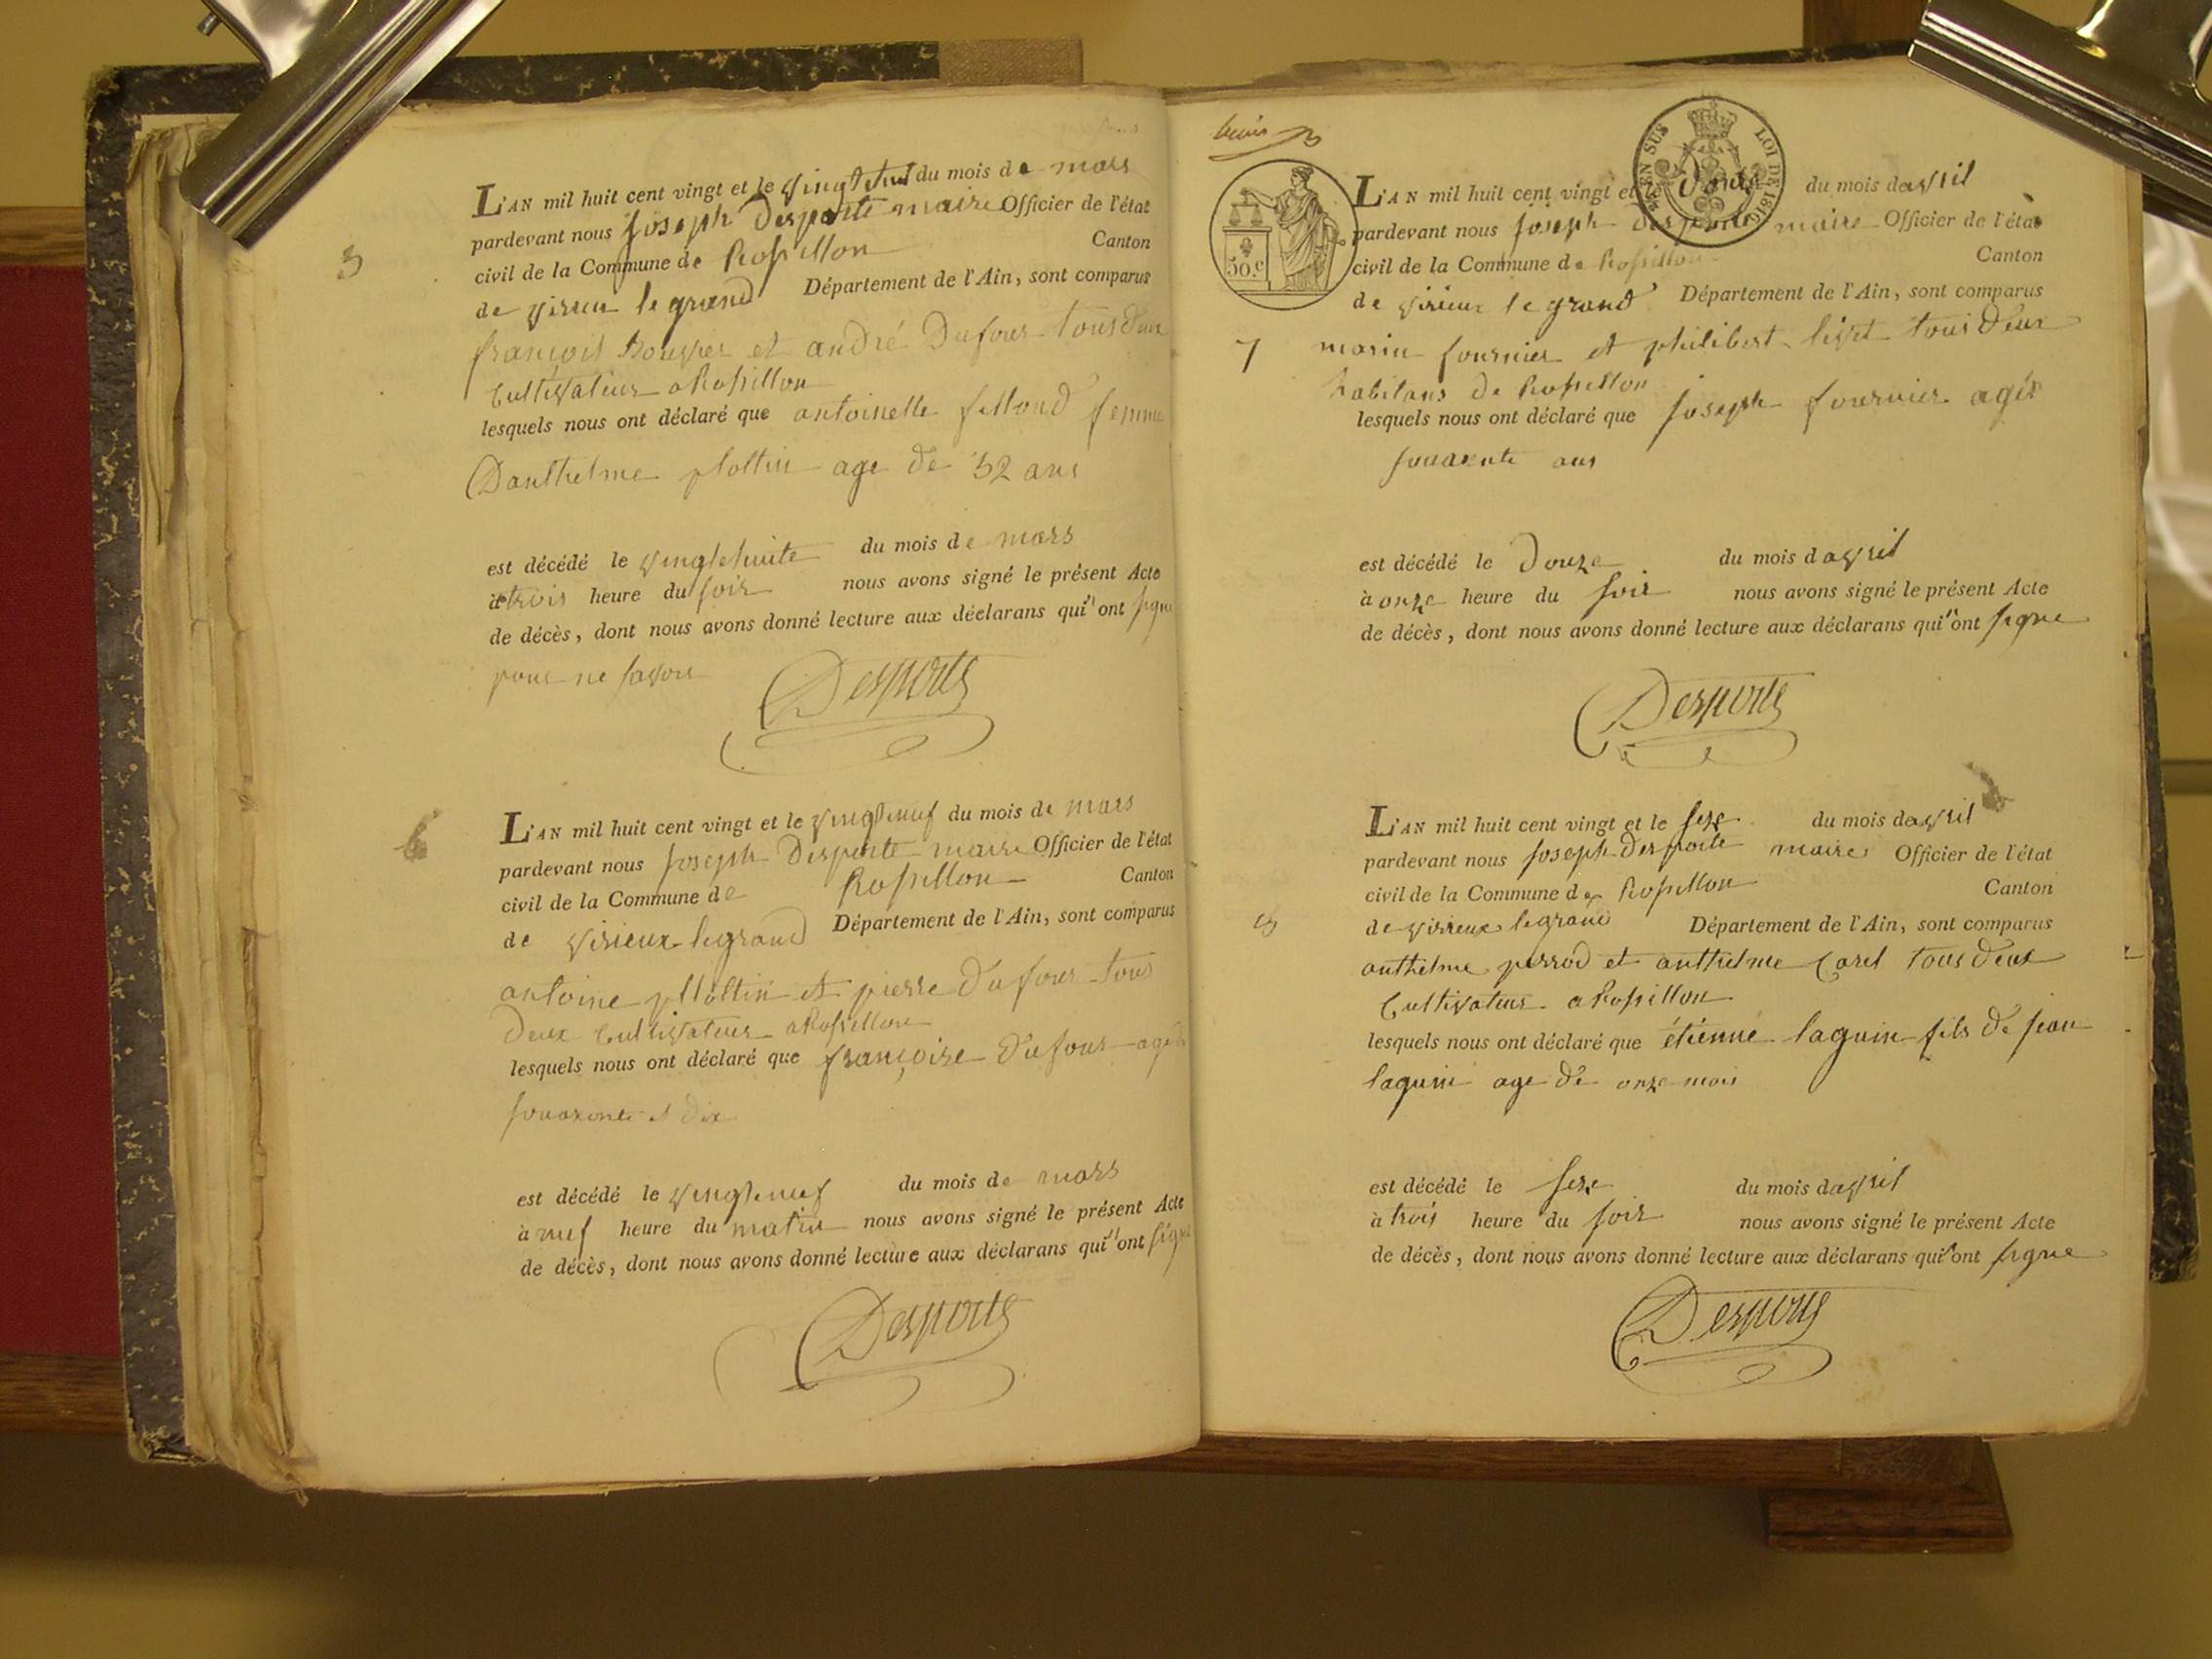 5
L'AN mil huit cent vingt et le vingt huit du mois de mars
pardevant nous joseph Desporte maire Officier de l'état
civil de la Commune de Rossillon Canton
de virieu le grand Département de l'Ain, sont comparus
françois et andré Dufour tous deux
Cultivateur a Rossillon
lesquels nous ont déclaré que antoinette fillond femme
Danthelme plottin age de 52 ans
est décédé le vingtehuite du mois de mars
à trois heure du soir nous avons signé le présent Acte
de décès, dont nous avons donné lecture aux déclarans qui n'ont signe
pour ne savoir
Desporte
6
L'AN mil huit cent vingt et le vingtneuf du mois de mars
pardevant nous joseph Desporte maire Officier de l'état
civil de la Commune de Rossillon Canton
de virieux legrand Département de l'Ain, sont comparus
antoine plottin et pierre Dufour tous
Deux Cultivateur a Rossillon
lesquels nous ont déclaré que françoise Dufour agée
souaxente et dix
est décédé le vingtneuf du mois de mars
à neuf heure du matin nous avons signé le présent Acte
de décès, dont nous avons donné lecture aux déclarans qui n'ont signe
Desporte
EN SUS LOI DE 1816
50.c
L'AN mil huit cent vingt et le Douze du mois de avril
pardevant nous joseph desporte maire Officier de l'état
civil de la Commune de Rossillon Canton
de virieux le grand Département de l'Ain, sont comparus
7
marin fournier et philibert tous deux
habitans de Rossillon
lesquels nous ont déclaré que joseph fournier agée
souaxente ans
est décédé le Douze du mois d avril
à onze heure du soir nous avons signé le présent Acte
de décès, dont nous avons donné lecture aux déclarans qui n'ont signe
Desporte
L'AN mil huit cent vingt et le seze du mois de avril
pardevant nous joseph desporte maire Officier de l'état
civil de la Commune de Rossillon Canton
8
de virieux legrand Département de l'Ain, sont comparus
anthelme perrod et anthelme Carel tous deux
Cultivateur a Rossillon
lesquels nous ont déclaré que étienne laguin fils de jean
laguin age de onze mois
est décédé le seze du mois d avril
à trois heure du soir nous avons signé le présent Acte
de décès, dont nous avons donné lecture aux déclarans qui n'ont signe
Desporte